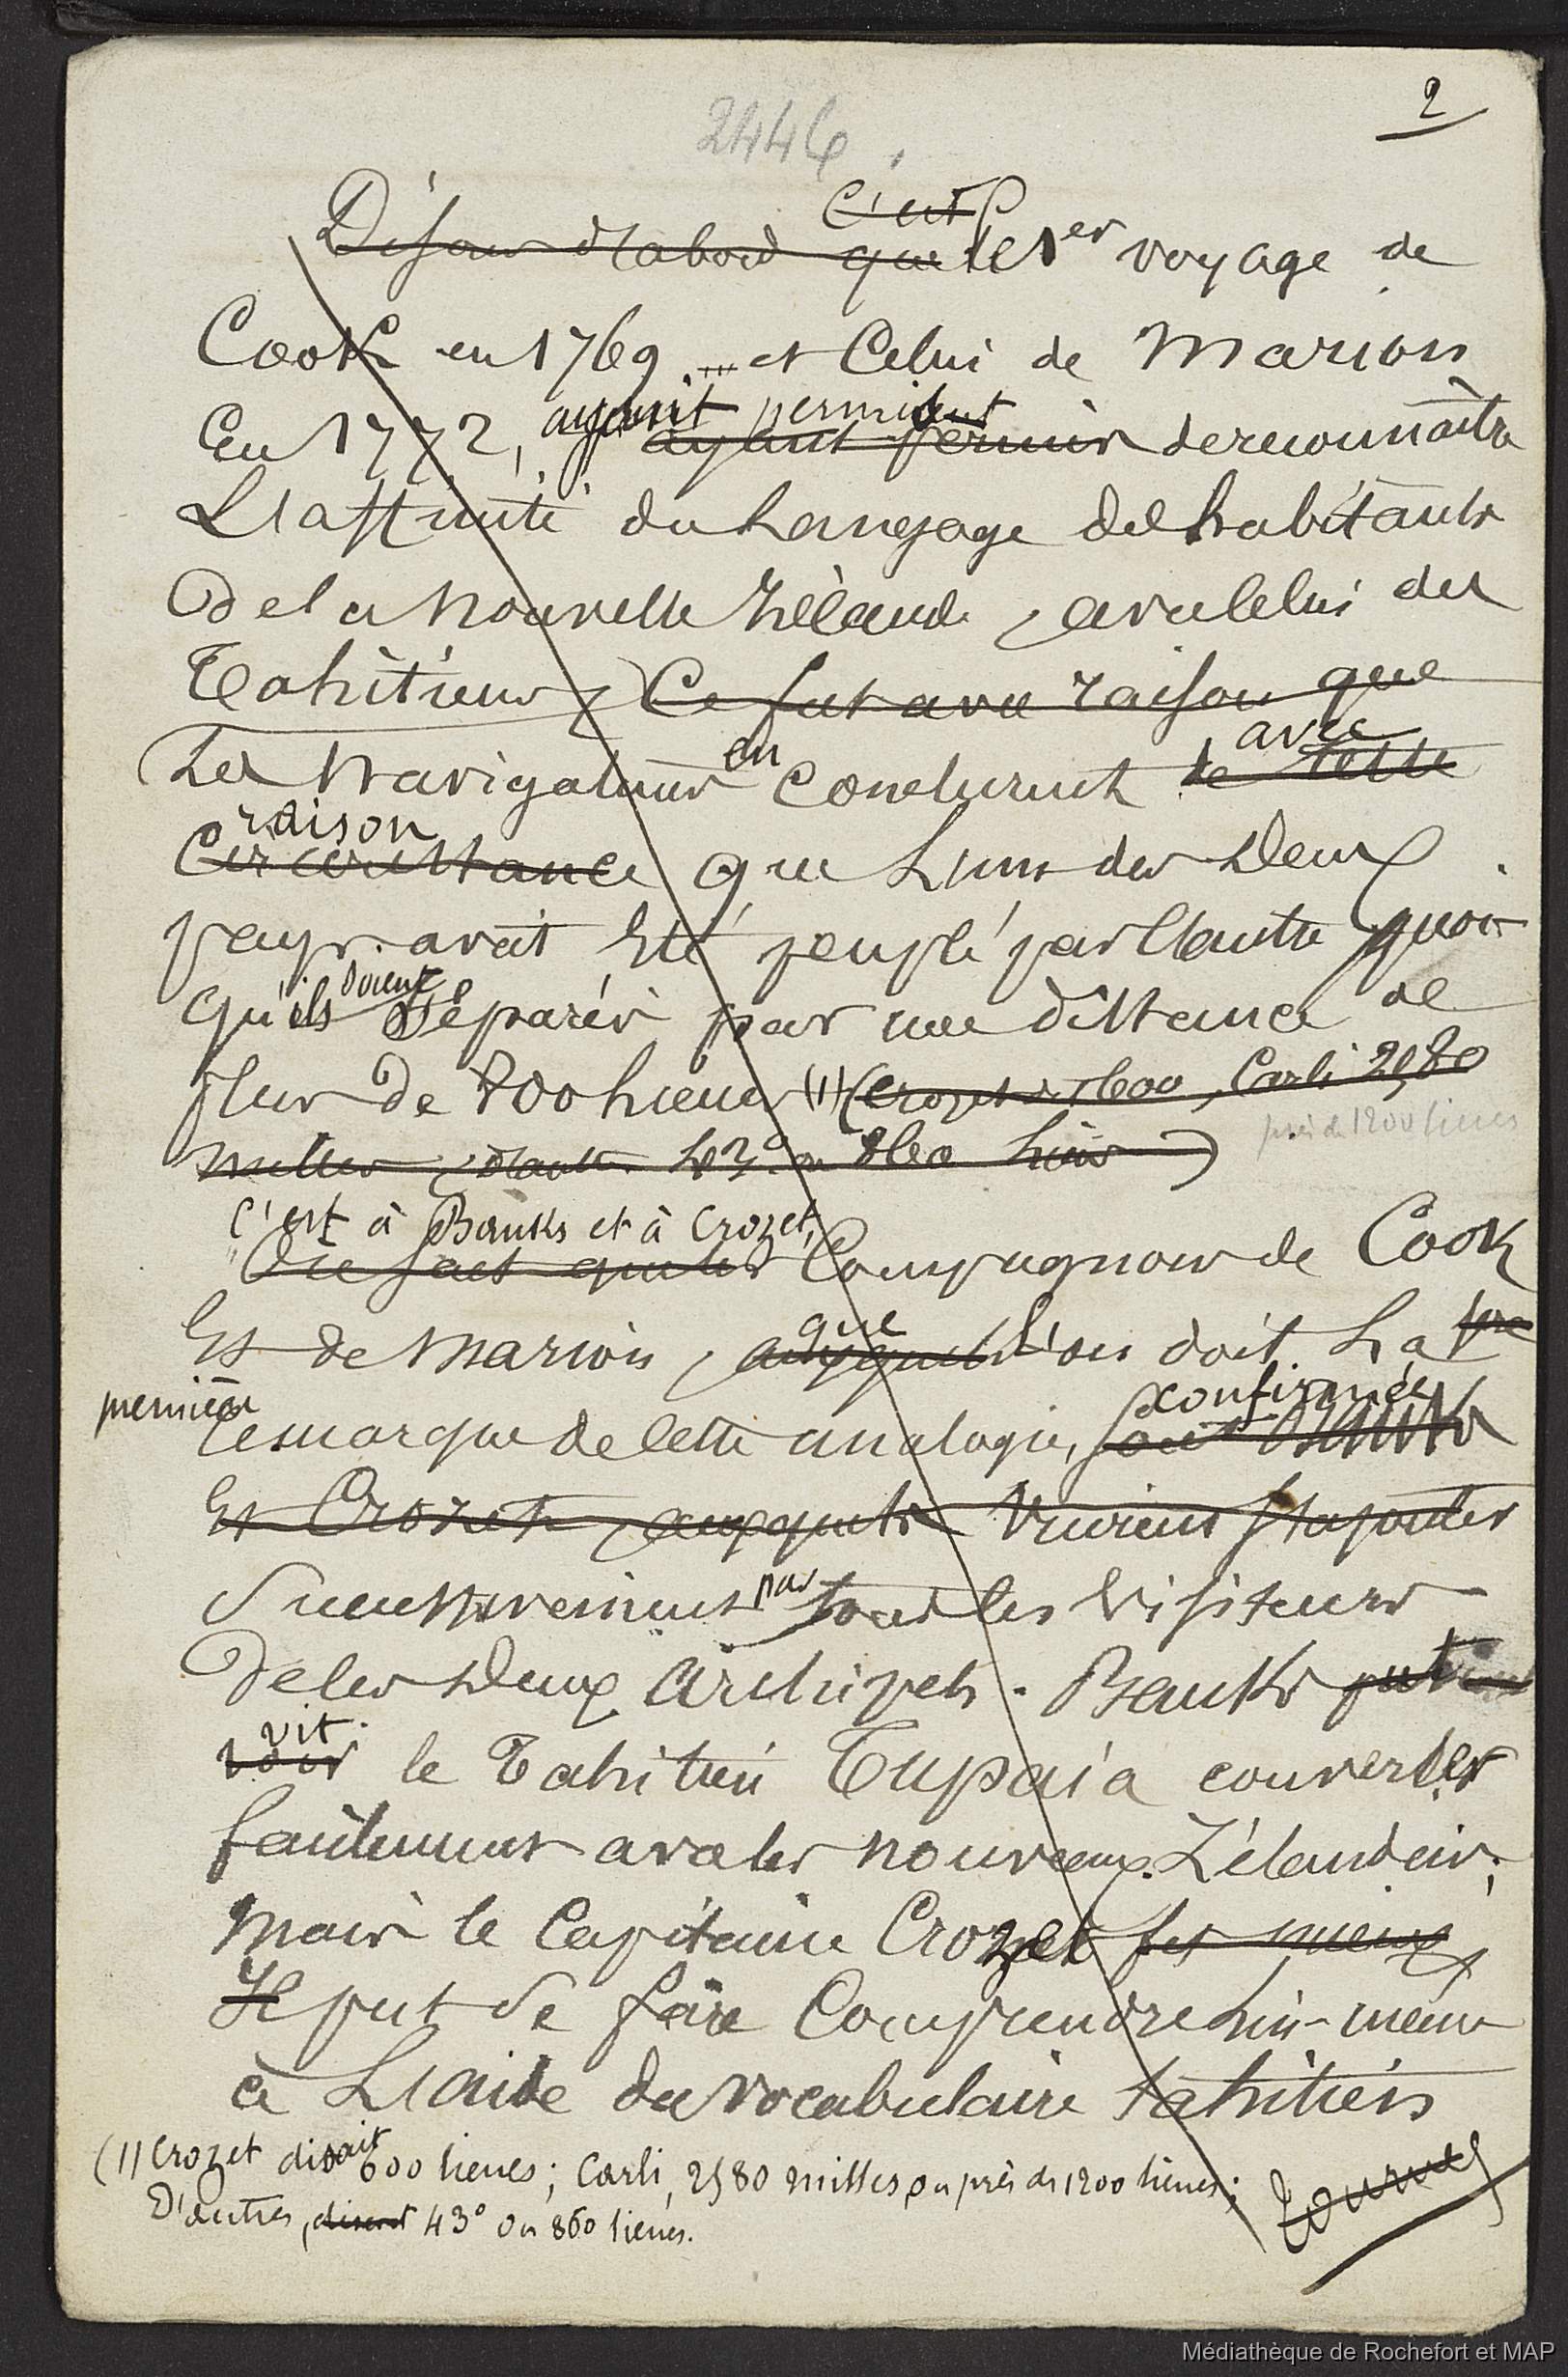 2
2446.
C'est
Disons d'abord que le 1er voyage de
Cook en 1769 et celui de Marion
ayant permis
En 1772, ayant permis de reconnaître
L'affinité du Langage des habitants
De la Nouvelle Zélande, avec celui des
Tahitiens, Ce fut avec raison que
Les Navigateurs en conclurent de cette
avec
raison
Circonstance que L'un des deux
pays avait Eté peuplé par l'autre quoi-
qu'ils soient séparés par une distance de
plus de 700 lieues (1) (Crozet 600, Carli 2980
près de 1200 lieues
milles, d'autres 43° ou 860 lieues)
C'est à Banks et à Crozet,
On sait que les Compagnons de Cook
Et de Marion, auxquels que l'on doit La 1re
première confirmée
remarque de cette analogie, sont Banks
Et Crozet, auxquels vinrent s'ajouter
Successivement par tous les Visiteurs
De les deux archipels. Banks put
vit
voir le Tahitien Tupaia converser
facilement avec les nouveaux Zélandais;
Mais le Capitaine Crozet fit mieux
Il put se faire Comprendre lui-même
à L'aide du vocabulaire tahitien
(1) Crozet disait 600 lieues; Carli, 2980 milles ou près de 1200 lieues;
D'autres, disent 43° ou 860 lieues.
tournez
Médiathèque de Rochefort et MAP